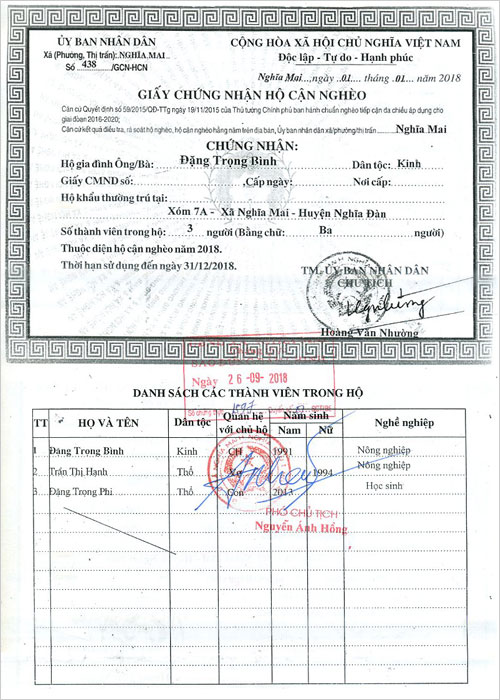 ỦY BAN NHÂN DÂN
Xã (Phường, Thị trấn): NGHĨA MAI
Số 438 /GCN-HCN
CỘNG HÒA XÃ HỘI CHỦ NGHĨA VIỆT NAM
Độc lập - Tự do - Hạnh phúc
Nghĩa Mai, ngày .01 tháng .01 năm 2018
GIẤY CHỨNG NHẬN HỘ CẬN NGHÈO
Căn cứ Quyết định số 59/2015/QĐ-TTg ngày 19/11/2015 của Thủ tướng Chính phủ ban hành chuẩn nghèo tiếp cận đa chiều áp dụng cho
giai đoạn 2016-2020;
Căn cứ kết quả điều tra, rà soát hộ nghèo, hộ cận nghèo hằng năm trên địa bàn, Ủy ban nhân dân xã/phường/thị trấn Nghĩa Mai
CHỨNG NHẬN:
Hộ gia đình Ông/Bà: Đặng Trọng Bình Dân tộc: Kinh
Giấy CMND số: ,Cấp ngày: Nơi cấp:
Hộ khẩu thường trú tại:
Xóm 7A - Xã Nghĩa Mai - Huyện Nghĩa Đàn
Số thành viên trong hộ: 3 người (Bằng chữ: Ba người)
Thuộc diện hộ cận nghèo năm 2018.
Thời hạn sử dụng đến ngày 31/12/2018.
TM. ỦY BAN NHÂN DÂN
CHỦ TỊCH
Hoàng Văn Nhường
Ngày 26-09-2018
DANH SÁCH CÁC THÀNH VIÊN TRONG HỘ
TT HỌ VÀ TÊN Dân tộc Quan hệ với chủ hộ Năm sinh Nam Nữ Nghề nghiệp
1 Đặng Trọng Bình Kinh CH 1991 Nông nghiệp
2 Trần Thị Hạnh Thổ Vợ 1994 Nông nghiệp
3 Đặng Trọng Phi Thổ Con 2013 Học sinh
PHÓ CHỦ TỊCH
Nguyễn Ánh Hồng